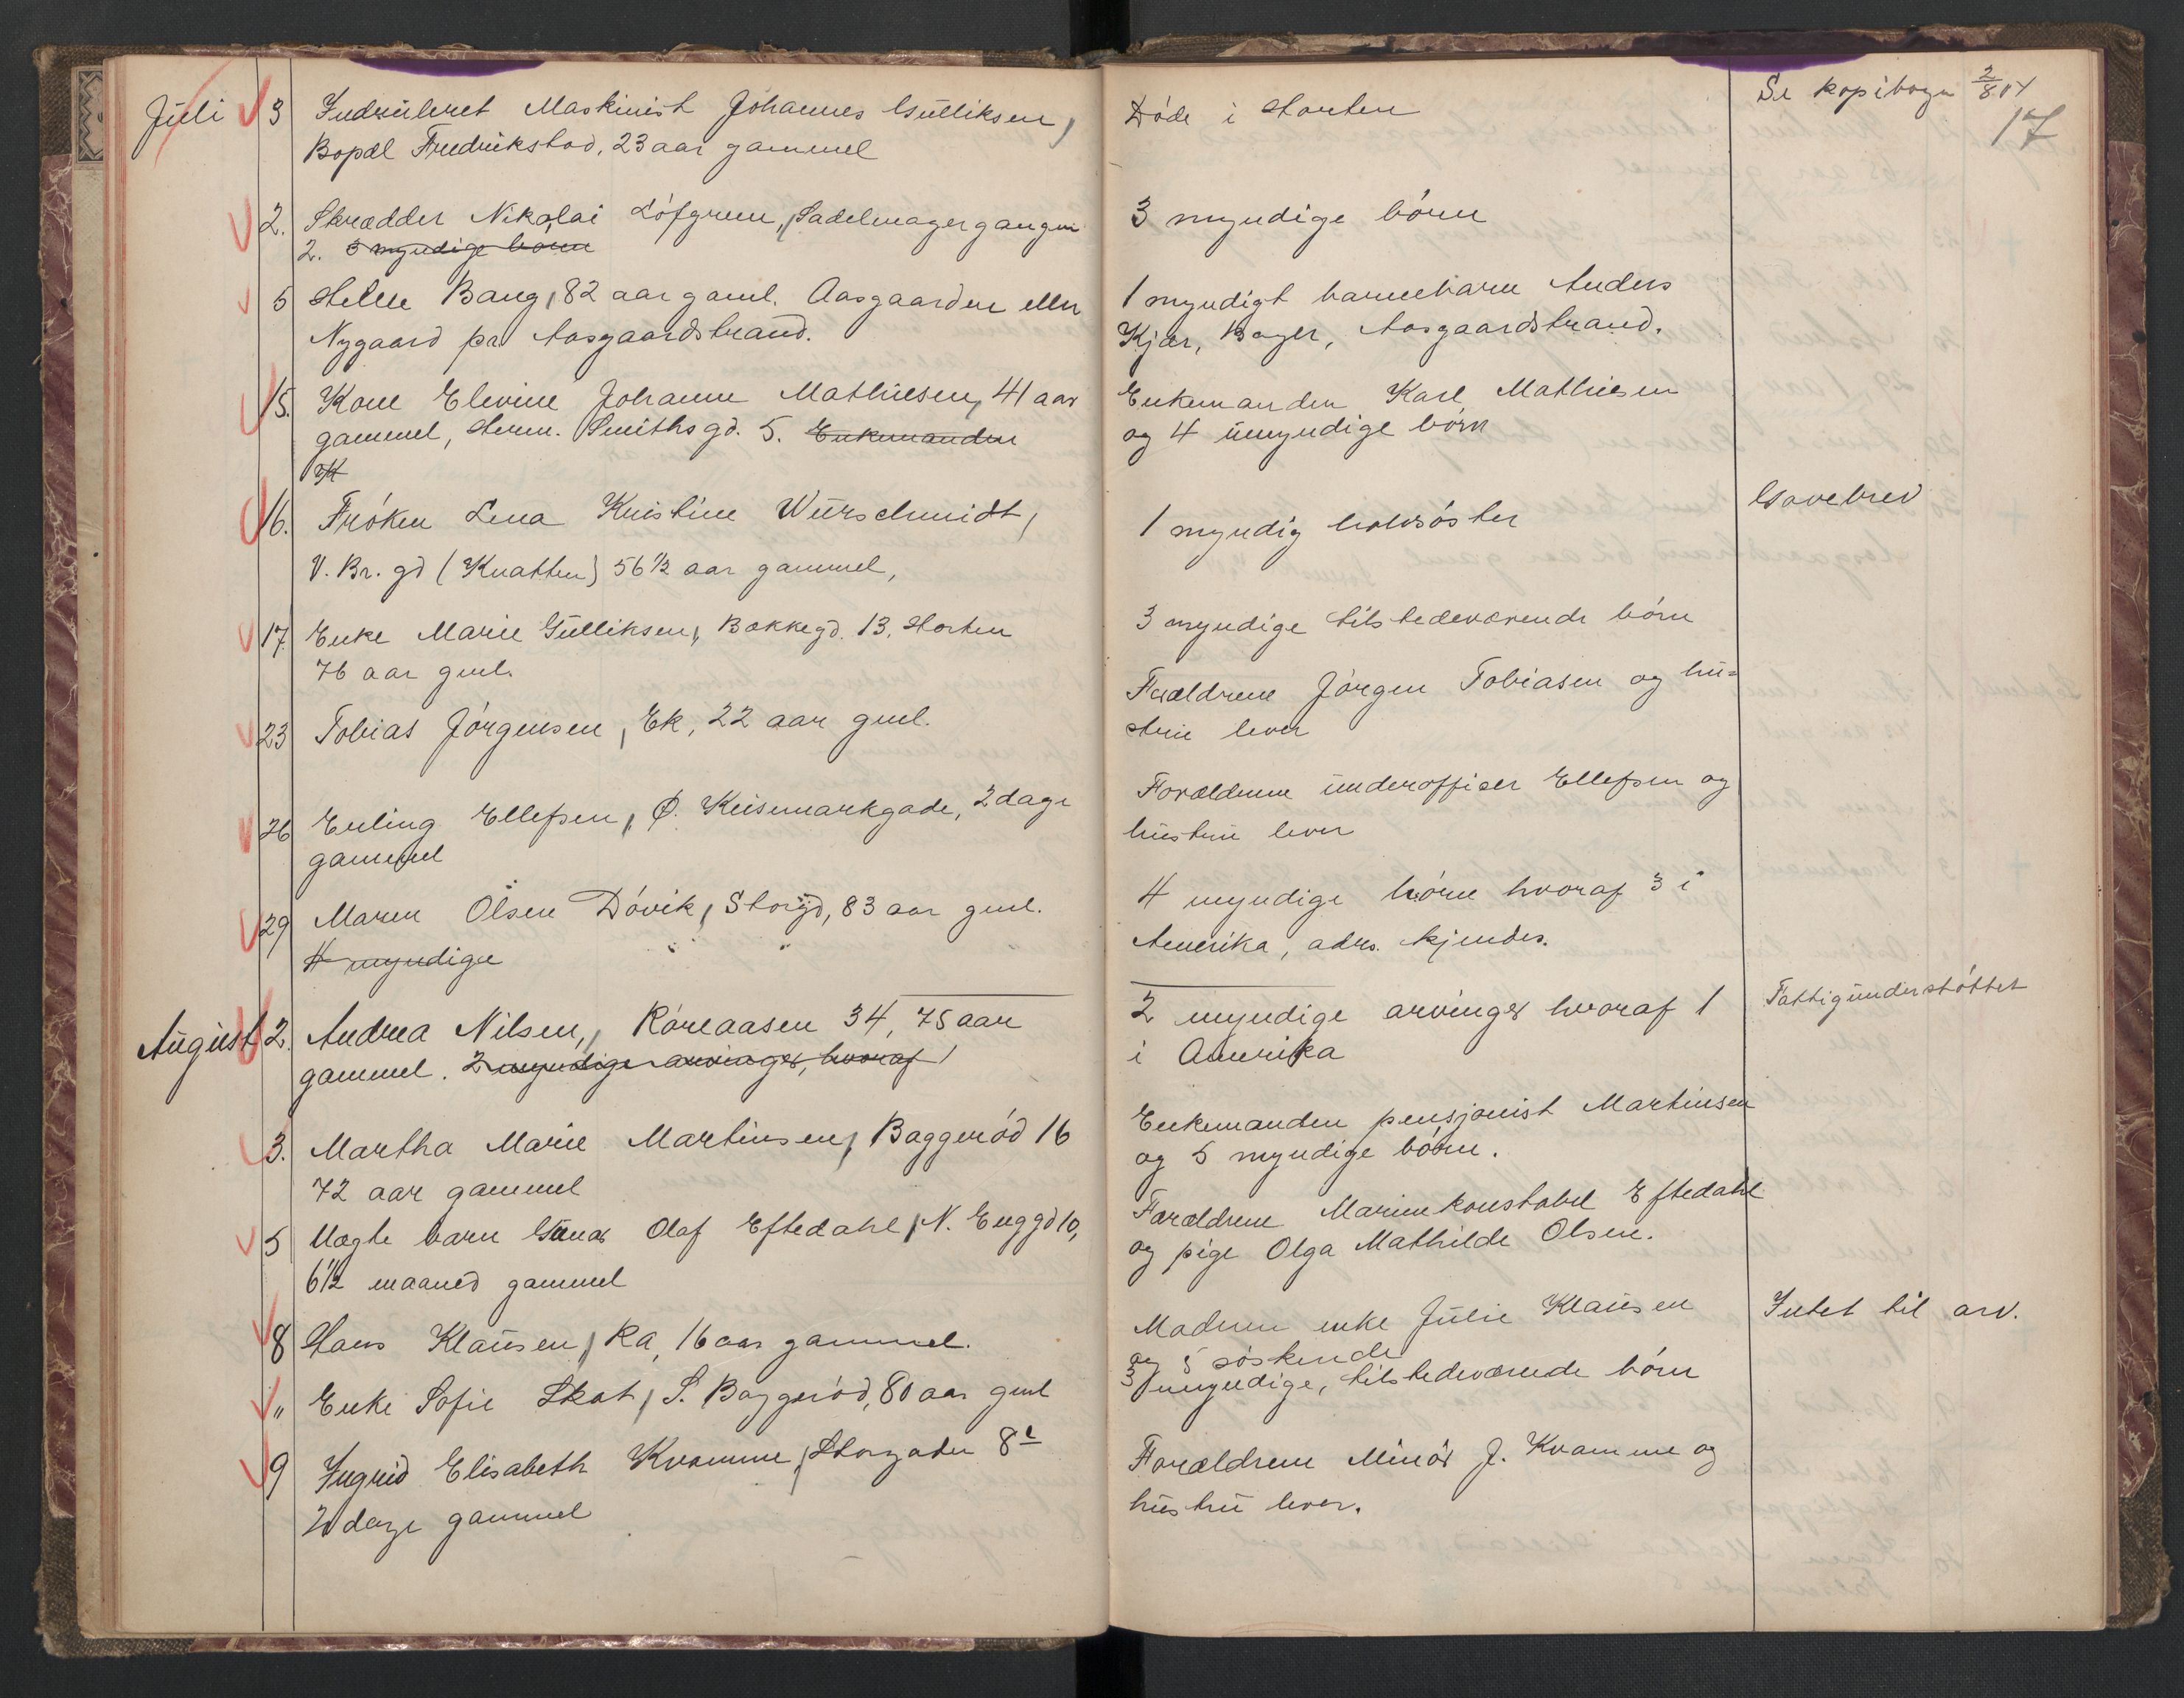 Juli 3 Indrulleret Maskinist Johannes Gulliksen,
Bopæl Fredrikstad, 23 aar gammel
2. Skrædder Nikolai Löfgren, Sadelmagergangen
2. 3 myndige børn
5 Helene Bang, 82 aar gaml. Aasgaarden eller
Nygaard pr Aasgaardstrand.
15. Kone Elevine Johanne Mathiesen, 41 aar
gammel, Herm. Smithsgd. 5. Enkemanden
16. Frøken Lena Kristine Würschmidt,
V. Br. gd (Knatten) 56 1/2 aar gammel,
17. Enke Marie Gulliksen, Bakkegd. 13, Horten
76 aar gml.
23 Tobias Jörgensen, Ek, 22 aar gml.
26 Erling Ellefsen, Ø. Keisemarkgade, 2 dage
gammel
29 Maren Olsen Dövik, Storgd, 83 aar gml.
4 myndige
August 2. Andrea Nilsen, Röreaasen 34, 75 aar
gammel. 2 myndige arvinger, hvoraf 1
3. Martha Marie Martinsen, Baggeröd 16
72 aar gammel
5 Uægte barn Gunar Olaf Eftedahl, N. Enggd 10,
6 1/2 maaned gammel
8 Hans Klausen, Ra, 16 aar gammel.
" Enke Sofie Skat, S. Baggeröd, 80 aar gml
9 Ingrid Elisabeth Kvamme, Storgaten 8
2 dage gammel
Döde i Horten
Se kopibogen 2/8 04
17
3 myndige börn
1 myndigt barnebarn Anders
Kjær, Bager, Aasgaardstrand.
Enkemanden Karl Mathiesen
og 4 umyndige börn
1 myndig halvsöster
Gavebrev
3 myndige tilstedeværende börn
Forældrene Jörgen Tobiasen og hu=
stru lever
Forældrene underofficer Ellefsen og
hustru lever
4 myndige börn hvoraf 3 i
Amerika, adrs. kjendes.
2 myndige arvinger hvoraf 1
i Amerika
Fattigunderstöttet
Enkemanden pensjonist Martinsen
og 5 myndige börn.
Forældrene Marinekonstabel Eftedahl
og pige Olga Mathilde Olsen.
Moderen enke Julie Klausen
og 5 söskende
Intet til arv.
3 myndige, tilstedeværende börn
Forældrene Minör J. Kvamme og
hustru lever.